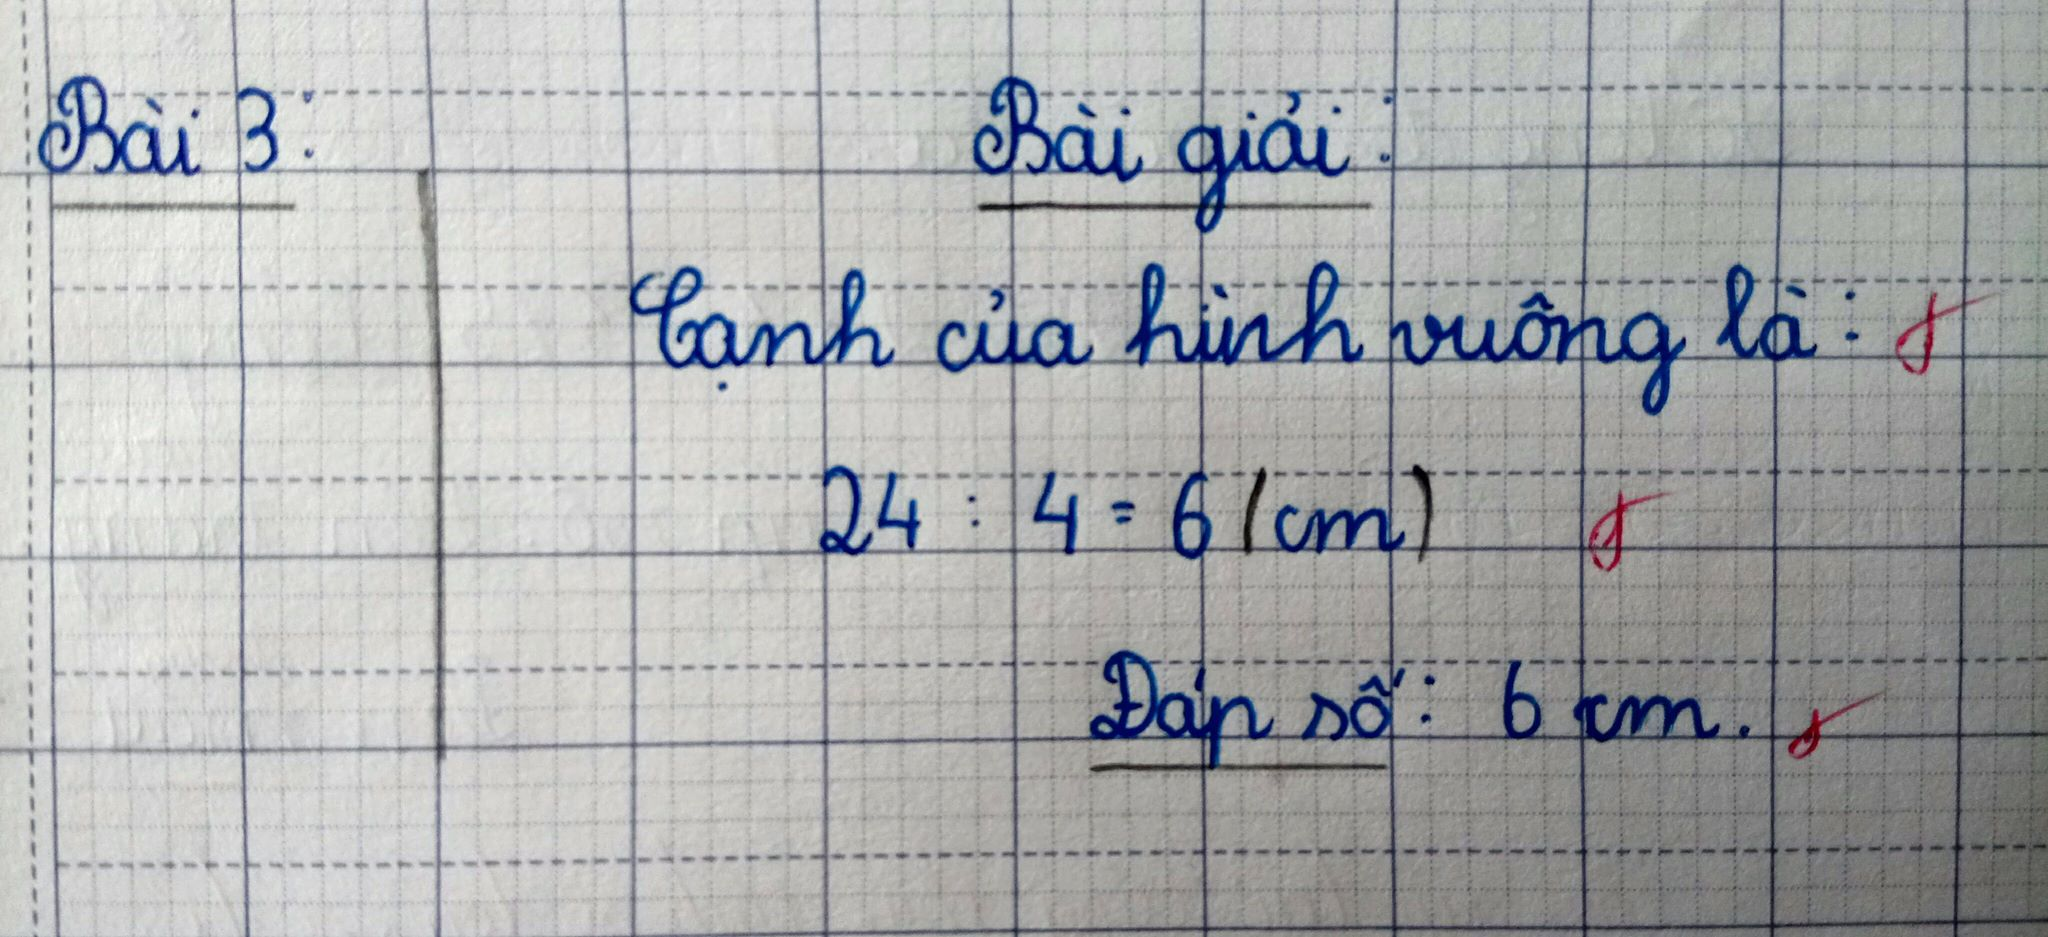 Bài 3:
Bài giải:
Cạnh của hình vuông là:
24 : 4 = 6 (cm)
Đáp số: 6 cm.